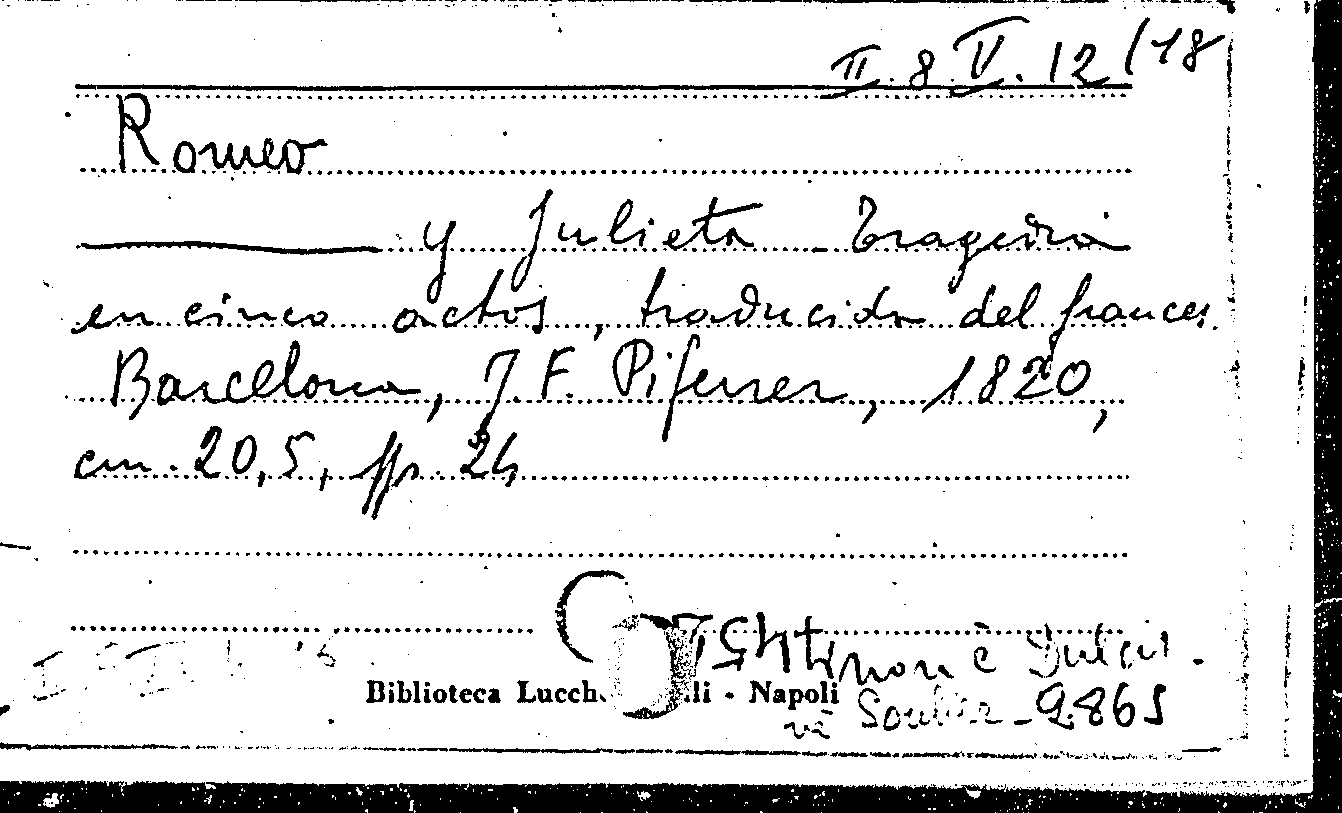 II. 8 V. 12 /18
Romeo
y Julieta - Tragedia
en cinco actos, traducida del frances.
Barcellona, J. F. Piferrer, 1820,
cm. 20,5, pp. 24
non è
Biblioteca Lucch li - Napoli
9865